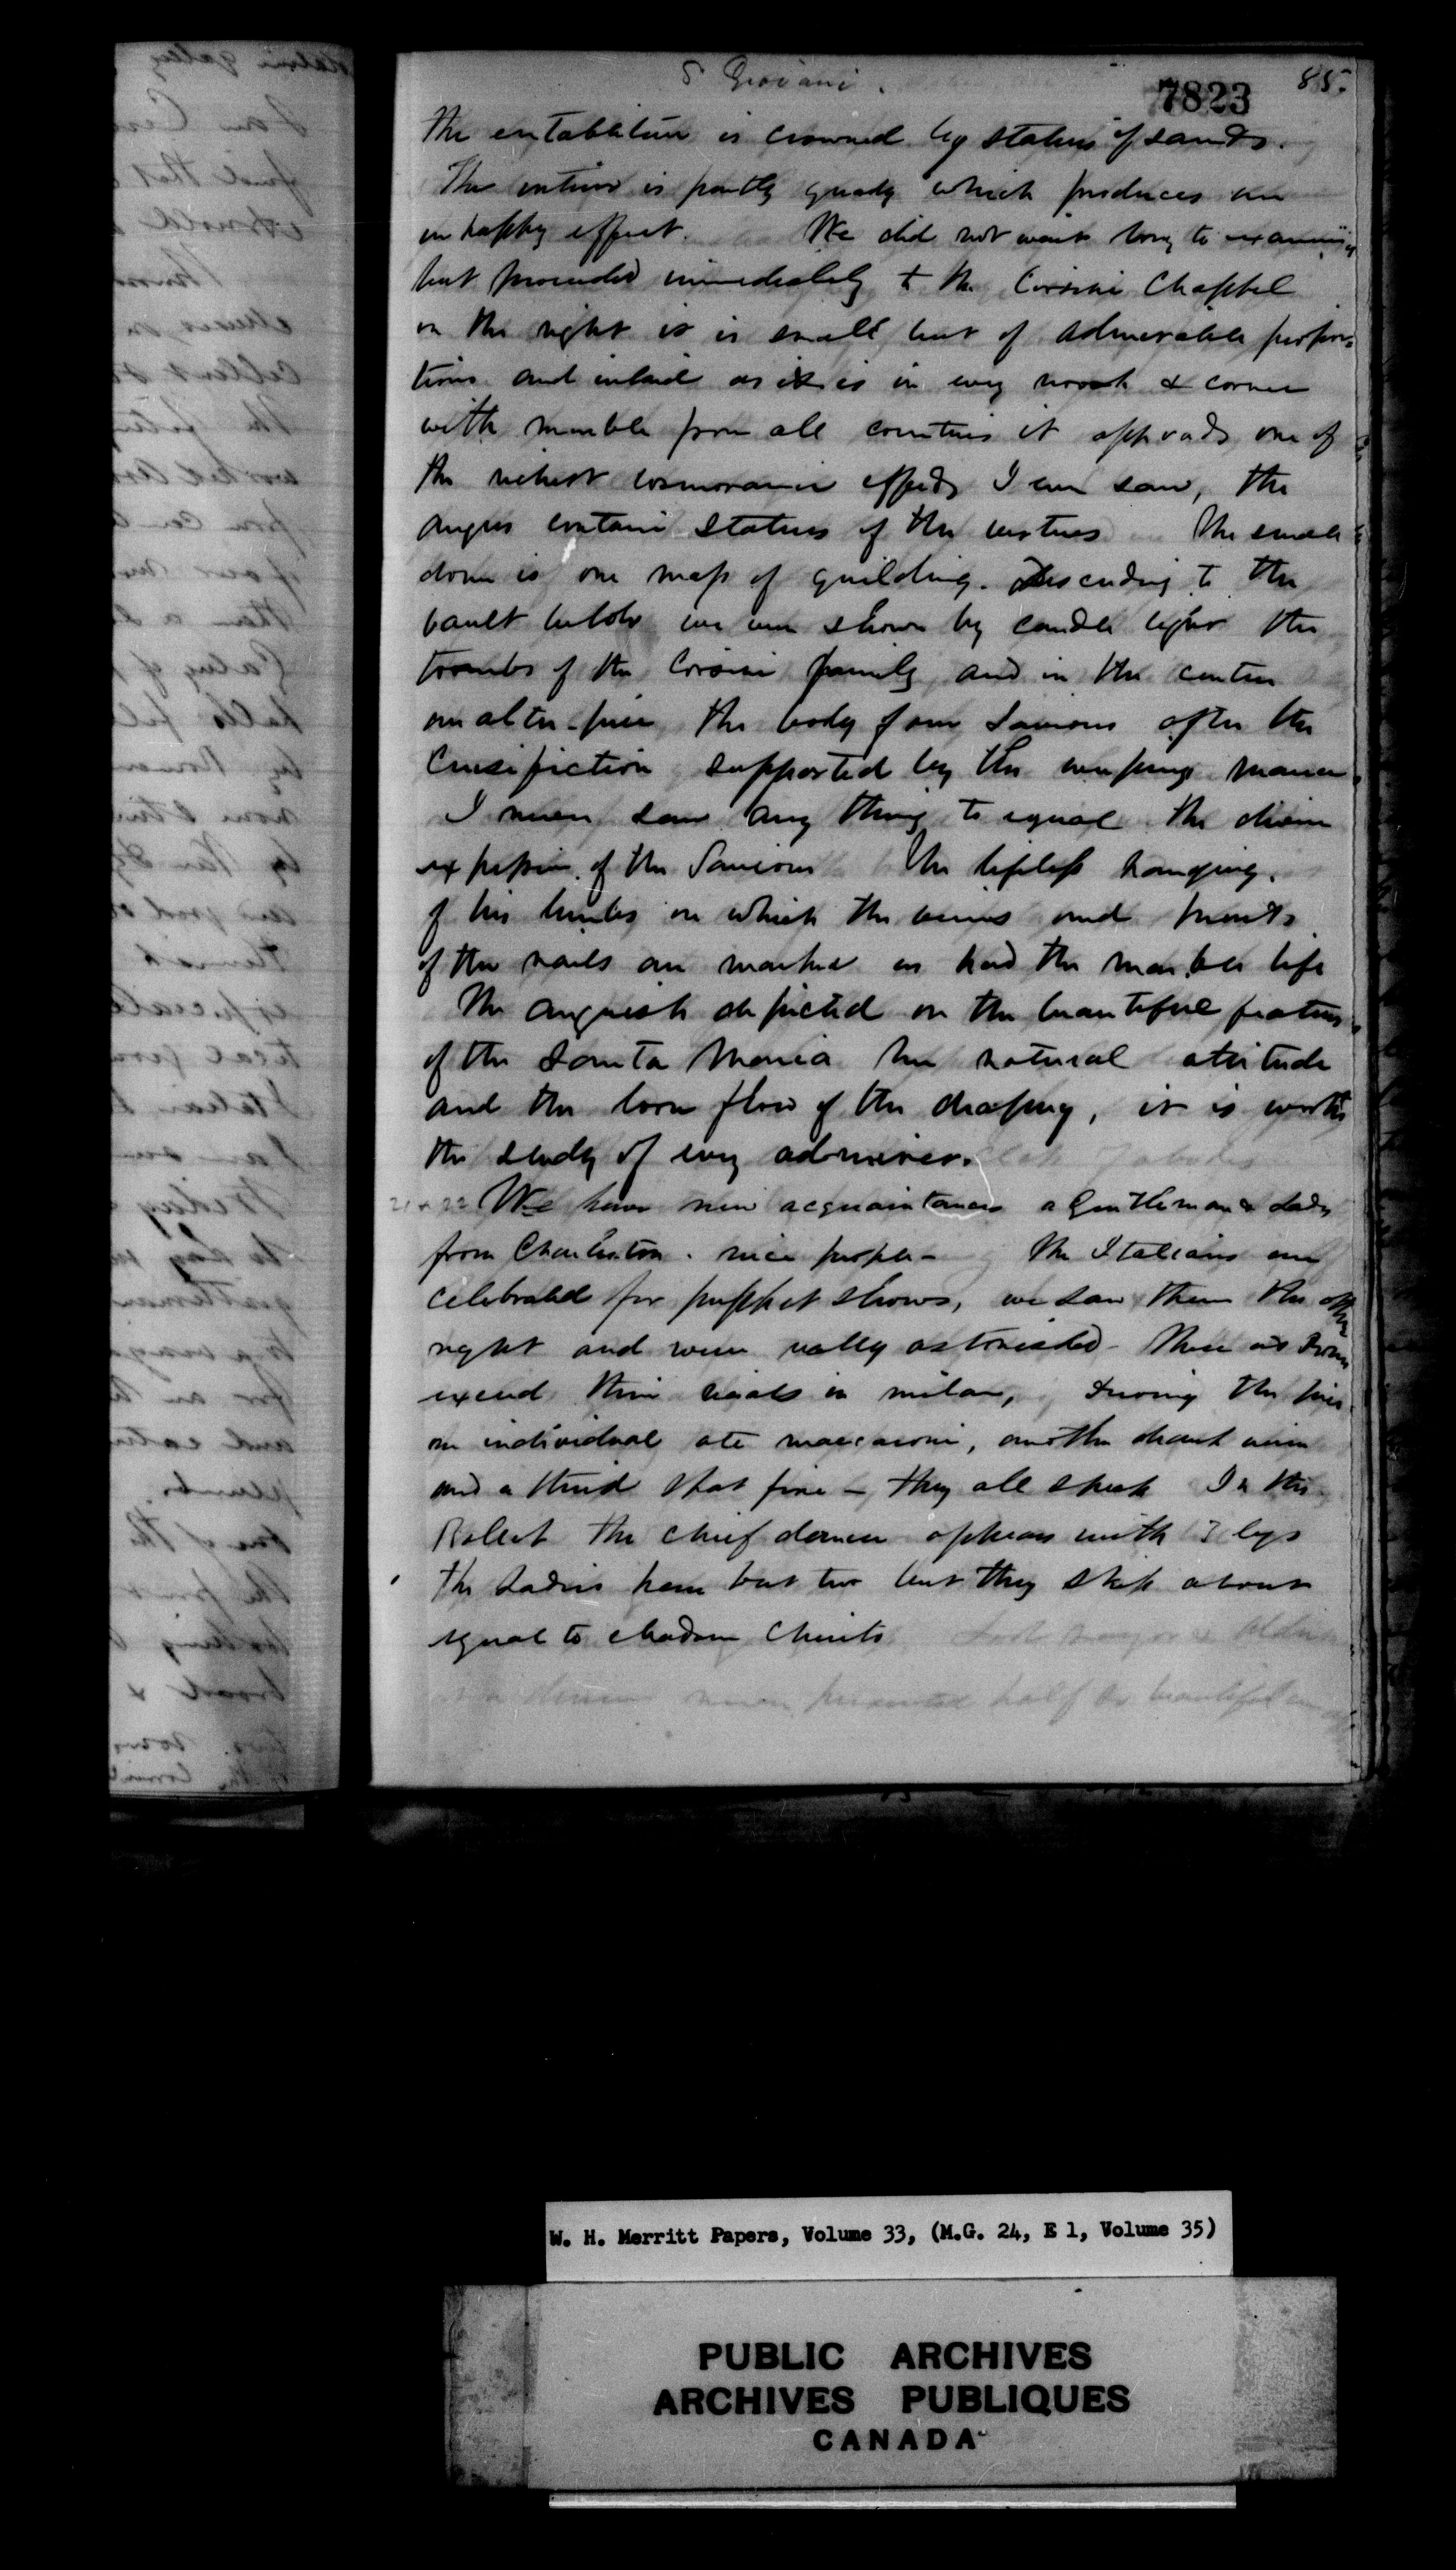 S Giovani.
7823
85.
The entablature is crowned by statues of saints.
The interior is partly guady which produces an
unhappy effect. We did not wait long to examining
but proceeded immediately to the Corsini Chappel
on the right it is small but of admirable propor-
tions and inlaid as it is in every nook & corner
with marble from all countries it affords one of
the richest cosmoramic effects I ever saw, the
angles contain statues of the virtues The small
dome is one mass of guilding. Descending to the
vault below we were shown by candle light the
toombs of the Corsini family and in the center
an alter-piece, the body of our Saviour after the
Crusifiction supported by the weeping Maria
I never saw any thing to equal the divine
expression of the Saviour The lifeless hanging.
of his limbs on which the veins and prints
of the nails are marked as had the marble life
The anguish depicted on the beautiful features
of the Santa Maria her natural attitude
and the loose flow of the drapery, it is worth
the study of every admirer.
21 & 22 We have new acquaintances a Gentleman & Lady
from Charleston. nice people - The Italians are
celebrated for puppet shows, we saw them the other
night and were really astonished - These at Rome
exceed their rivals in milan, During the piece
one individual ate maccaroni, another drank wine
and a third spat fire - they all speak In the
Ballet the chief dancer appears with 3 legs
The Ladies have but two but they skip about
equal to Madam Cherito
W. H. Merritt Papers, Volume 33, (M.G. 24, E 1, Volume 35)
PUBLIC ARCHIVES
ARCHIVES PUBLIQUES
CANADA